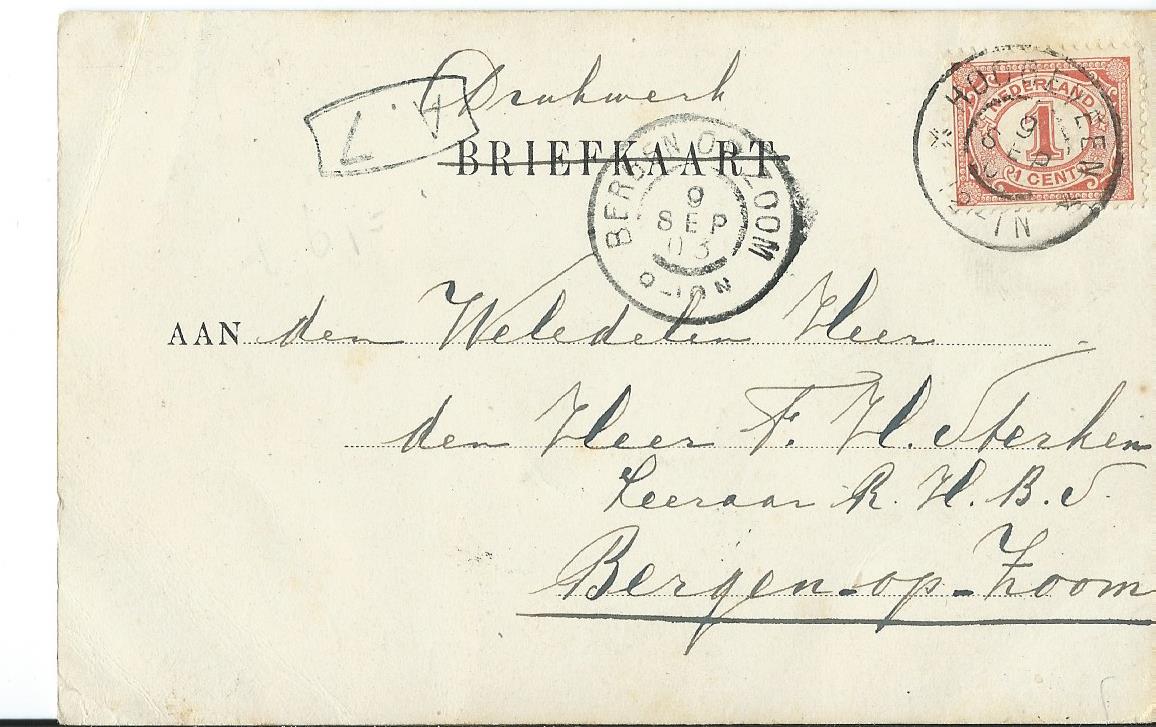 Drukwerk
BRIEFKAART
A. 7
NEDERLAND
1
1 CENT
9 SEP 03
BERGEN OP ZOOM
9
SEP
03
AAN den Weledelen Heer
den Heer F. H. Sterken
Leeraar R. H. B. S.
Bergen-op-Zoom